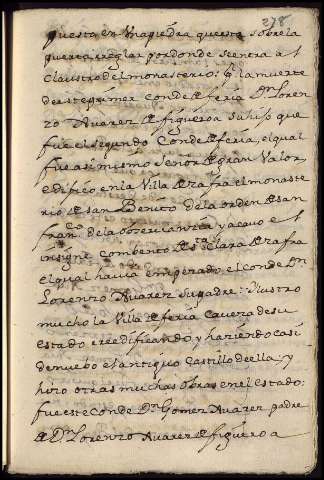 278
puesta en Vna piedra questa sobre la
puerta reglar por donde se entra a l
claustro del monasterio: la muerte
de este primer conde de feria Dn Loren
zo Auarez de figueroa su hijo que
fue el segundo Conde de feria, el qual
fue asi mismo Señor de gran Valor,
edifico en la Villa de Zafra el monaste
rio de san Benito de la orden de san
franco de la obserbanzia y acauo el
insigne combento de Sta Clara de Zafra
el qual hauia empezado el conde Dn
Lorenzo Auarez su padre: Ilustro
mucho la Villa de feria caueza de su
estado reedificando, y haziendo casi
de nuebo el antiguo castillo de ella; y
hizo otras muchas obras en el estado:
fue este Conde Dn Gomez Auarez padre
de Dn Lorenzo Auarez de figueroa